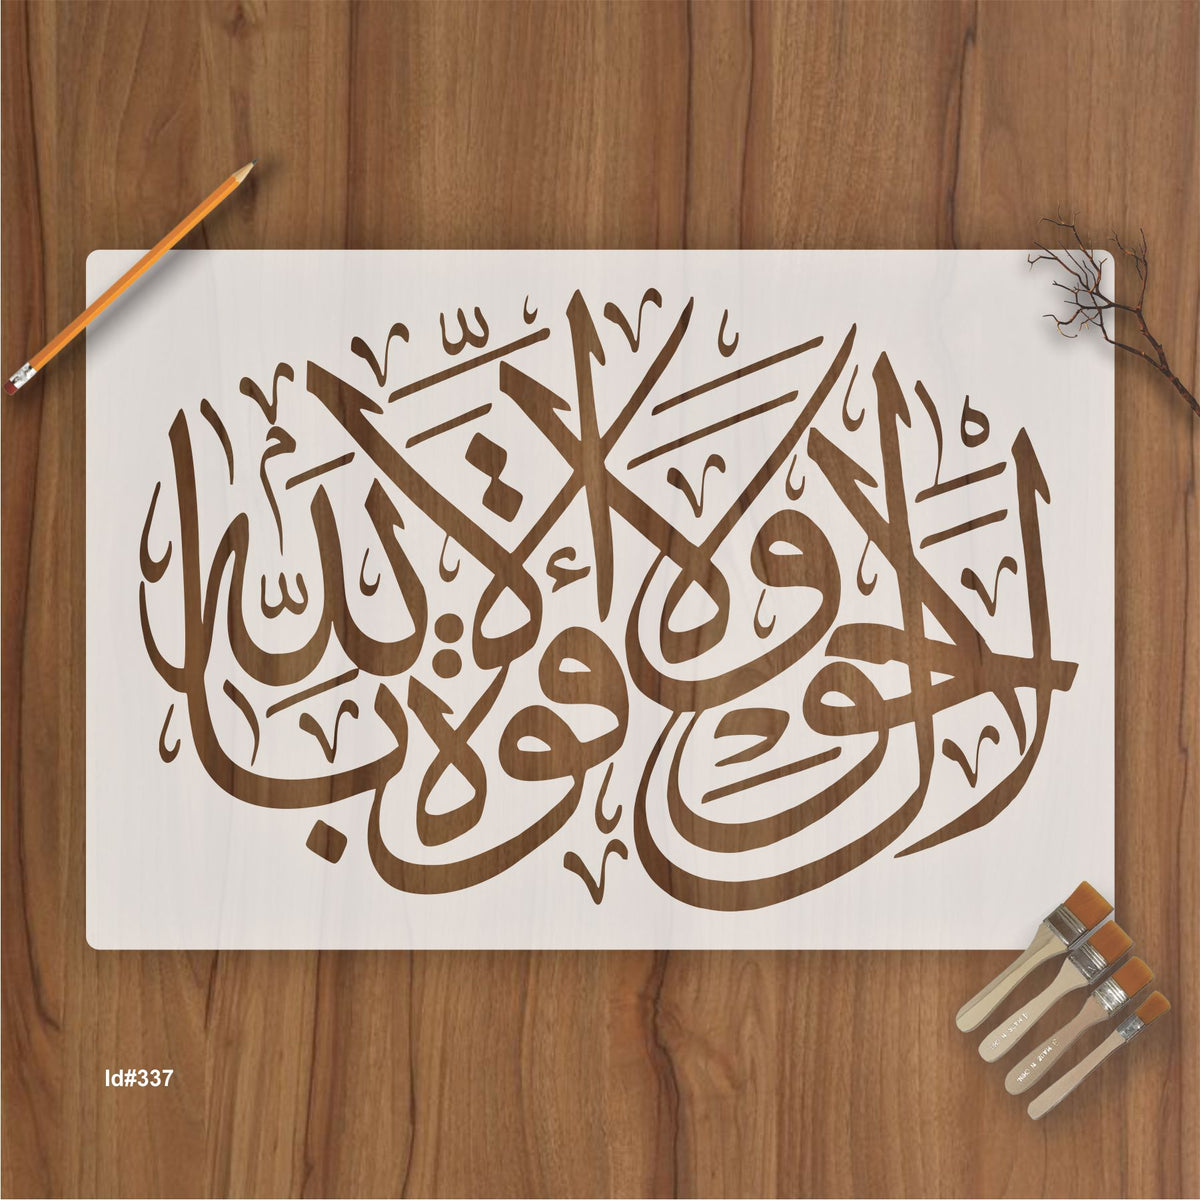 لا حول ولا قوة إلا بالله
Id#337